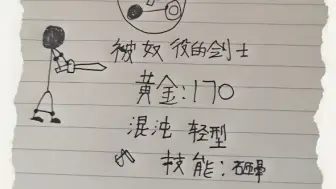 被奴役的剑士
黄金:170
混沌 轻型
技能:石晒